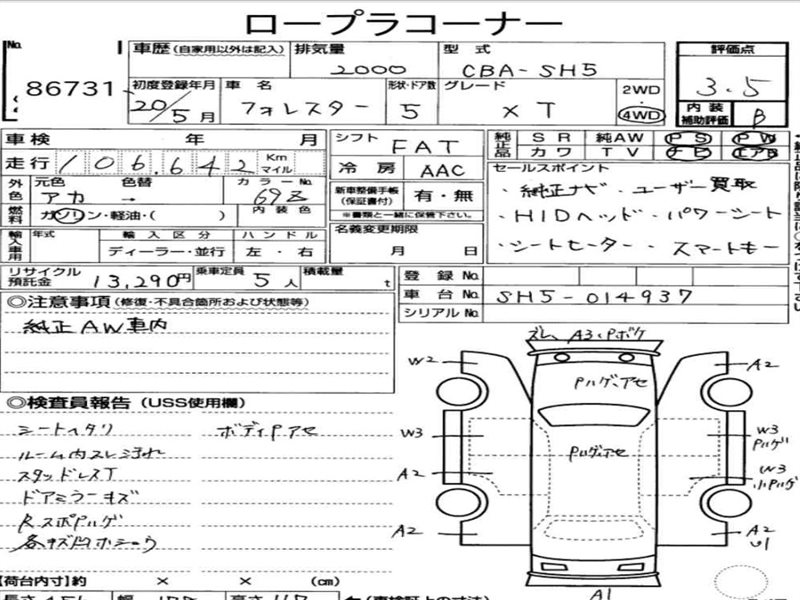 ロープラコーナー
No. 86731
車歴 (自家用以外は記入) 排気量 2000 型式 CBA-SH5
評価点 3.5
初度登録年月 20/5月 車名 フォレスター 形状・ドア数 5 グレード XT 2WD 4WD
内装補助評価 B
車検 年 月 シフト FAT
純正品 SR 純AW PS PW
カワ TV ナビ エアB
走行 106,642 Km マイル 冷房 AAC
外色 元色 アカ 色替 → カラーNo. 69Z
新車整備手帳(保証書付) 有・無
※書類と一緒に保管下さい。
燃料 ガソリン・軽油・( ) 内装色
セールスポイント
・純正ナビ ・ユーザー買取
・HIDヘッド・パワーシート
・シートヒーター ・スマートキー
輸入車用 年式 輸入区分 ディーラー・並行 ハンドル 左・右
名義変更期限 月 日
リサイクル預託金 13,290円 乗車定員 5人 積載量 t
登録No.
車台No. SH5-014937
シリアルNo.
◎注意事項 (修復・不具合箇所および状態等)
純正AW車内
◎検査員報告 (USS使用欄)
シートヘタリ ボディPアセ
ルーム内スレ汚れ
スタッドレスT
ドアミラーキズ
RスポPハゲ
各キズ凹ホシュウ
ズレ A3、Pボケ
W2 A2
Pハゲ、アセ
W3 W3 Pハゲ
Pハゲ、アセ
A2 W3 小Pハゲ
A2 A2 U1
A1
【荷台内寸】約 × × (cm)
幅 高さ (車検証上の寸法)